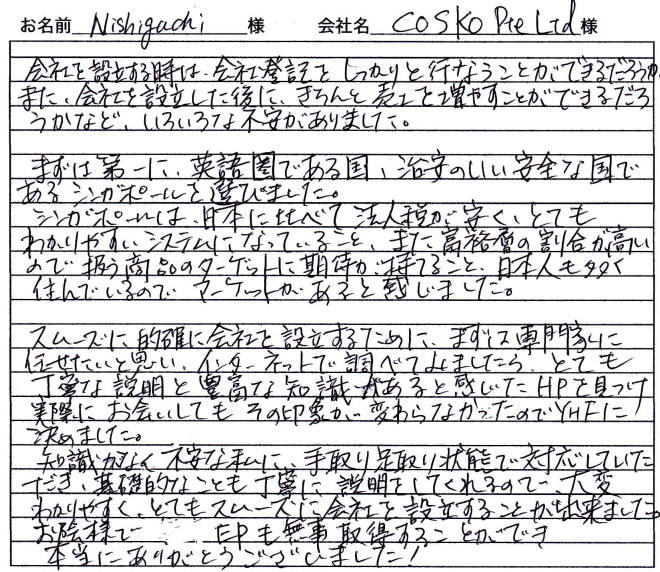 お名前 Nishiguchi 様 会社名 COSKO Pte Ltd 様
会社を設立する時は、会社登記をしっかりと行なうことができるだろうか
また、会社を設立した後に、きちんと売上を増やすことができるだろ
うかなど、いろいろな不安がありました。
まずは第一に、英語圏である国、治安のいい安全な国で
あるシンガポールを選びました。
シンガポールは、日本に比べて法人税が安く、とても
わかりやすいシステムになっていること、また富裕層の割合が高い
ので扱う商品のターゲットに期待が持てること、日本人も多く
住んでいるので マーケットがあると感じました。
スムーズに的確に会社を設立するために、まずは専門家に
任せたいと思い、インターネットで調べてみましたら、とても
丁寧な説明と豊富な知識があると感じたHPを見つけ
実際にお会いしてもその印象が変わらなかったのでYHFに
決めました。
知識がなく不安な私に、手取り足取り状態で対応していた
だき、基礎的なことも丁寧に説明をしてくれるので、大変
わかりやすく、とてもスムーズに会社を設立することが出来ました。
お陰様で EPも無事取得することができ
本当にありがとうございました!